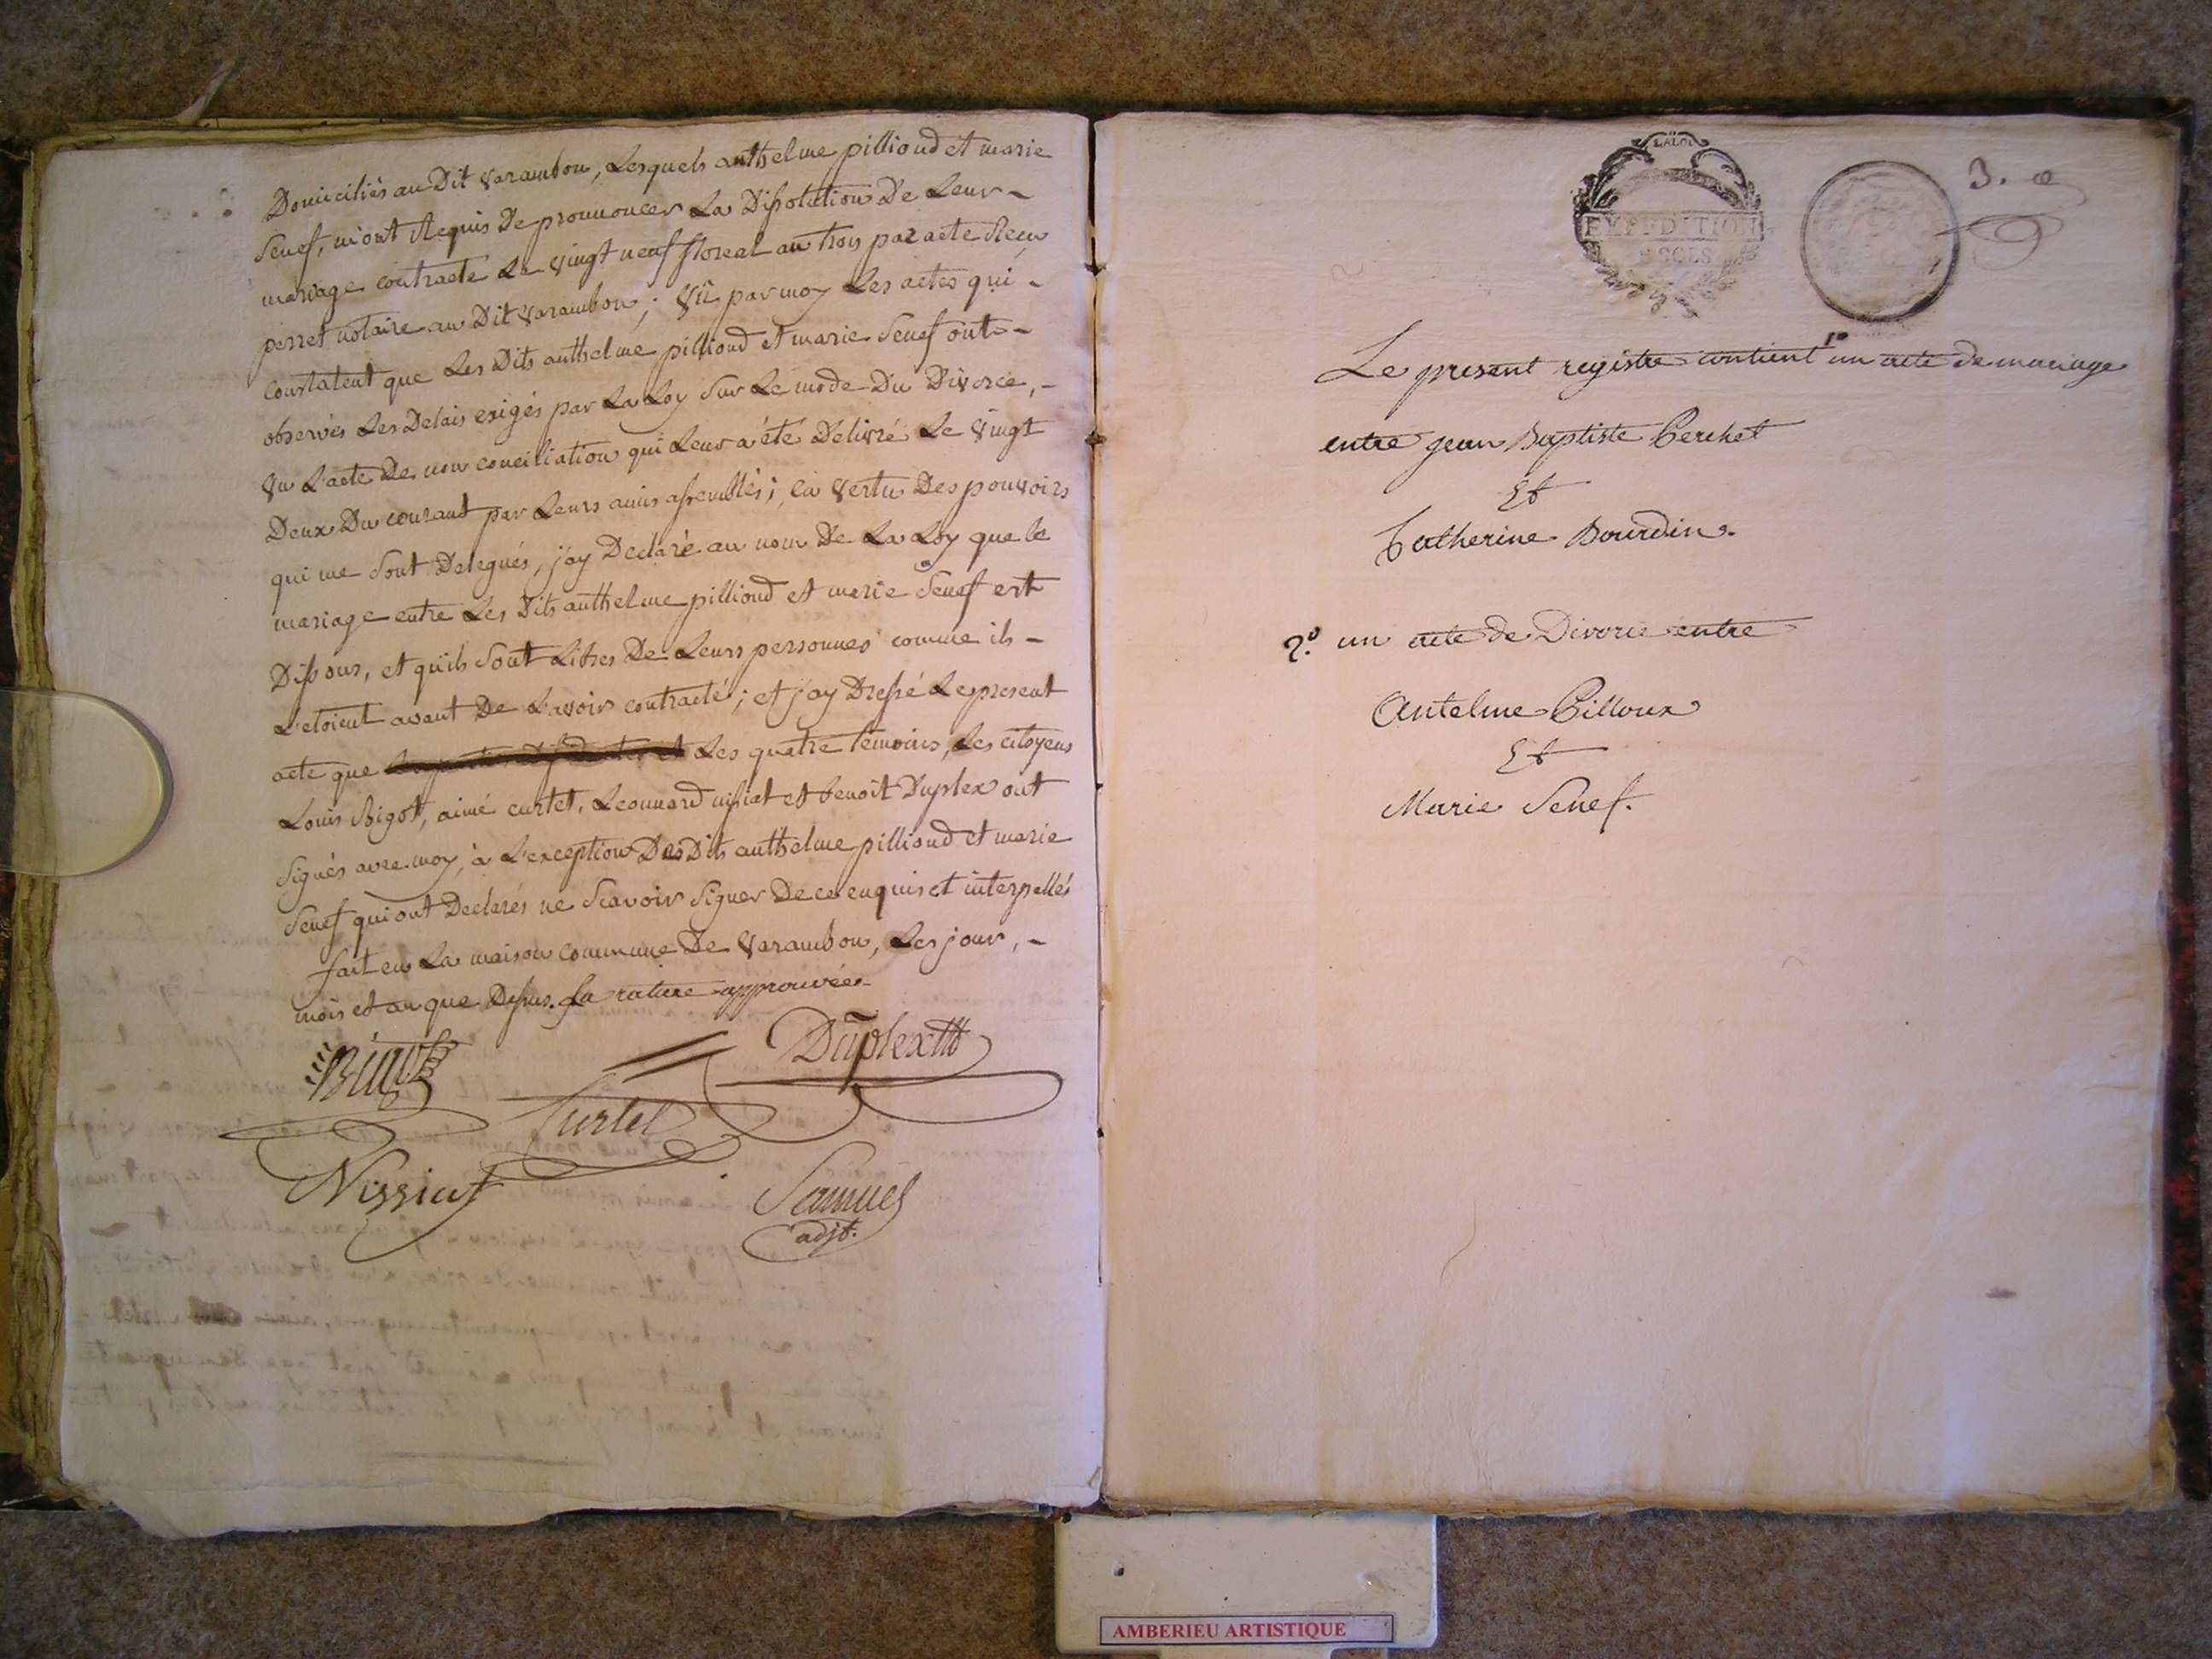 Domiciliés au Dit Varambon, Lesquels anthelme pilliond et marie
Senef, m'ont Requis De prononcer La Dissolution De Leur -
mariage contracté Le vingt neuf floreal an trois par acte Reçu
perret notaire au Dit Varambon; Vû par moy Les actes qui -
constatent que Les Dits anthelme pilliond et marie Senef ont -
observés Les Delais exigés par La Loy Sur Le mode Du Divorce, -
Vu L'acte De non conciliation qui Leur a été Délivré Le Vingt
Deux Du courant par Leurs amis assemblés; en Vertu Des pouvoirs
qui me Sont Delegués, j'ay Declaré au nom De La Loy que le
mariage entre Les Dits anthelme pilliond et marie Senef est
Dissous, et qu'ils Sont Libres De Leurs personnes comme ils -
L'etoient avant De L'avoir contracté; et j'ay Dressé Le present
acte que Les quatre témoins, Les citoyens
Louis Bigot, aimé curtet, Leonnard nissiat et benoit Duplex ont
Signés avec moy, à L'exception Des Dits anthelme pilliond et marie
Senef qui ont Declarés ne Scavoir Signer De ce enquis et interpellés
fait en La maison commune De Varambon, Les jour, -
mois et an que Dessus. La rature approuvée
Bigot
Duplex
Curtet
Nissiat
Samuel
adjt.
LA LOI
EXPEDITION
3.
Le present registre contient 1º un acte de mariage
entre jean Baptiste Perchet
Et
Catherine Bourdin.
2º. un acte de Divorce entre
Antelme Pilloux
Et
Marie Senef.
AMBERIEU ARTISTIQUE